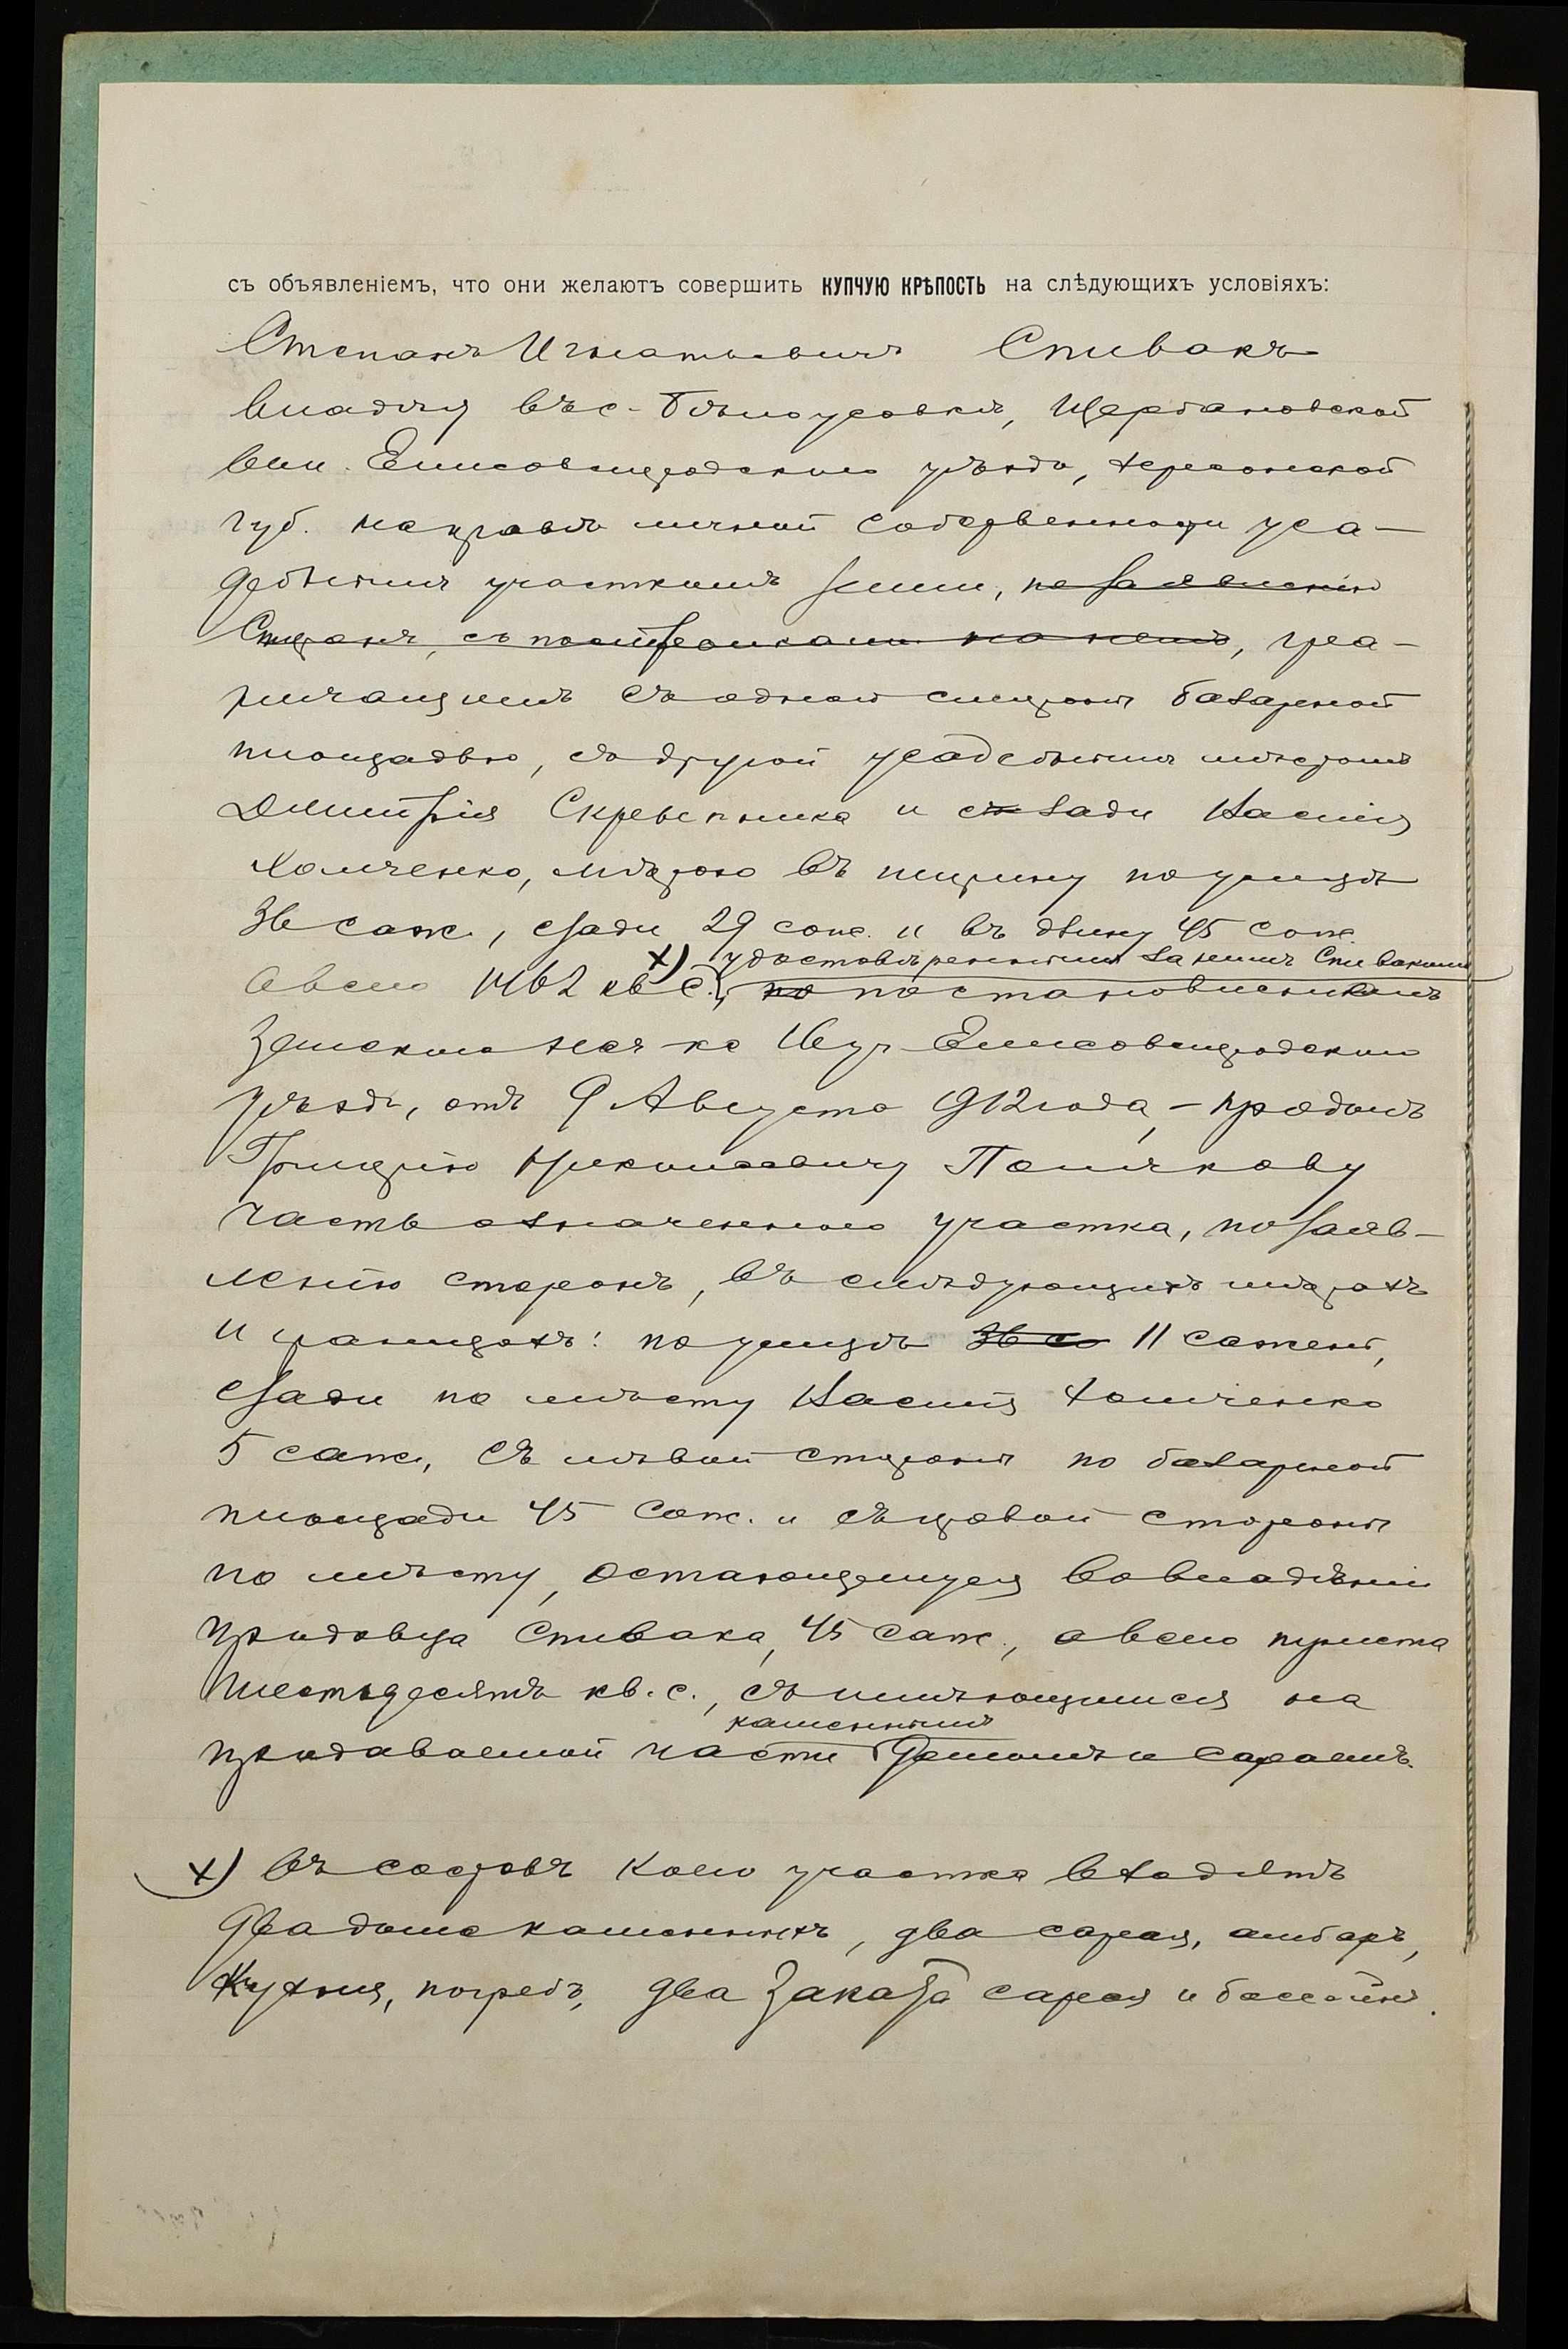 съ объявленіемъ, что они желаютъ совершить КУПЧУЮ КРѢПОСТЬ на слѣдующихъ условіяхъ:
Степанъ Игнатьевичъ Спивакъ
владѣя въ с. Бѣлоусовкѣ, Щербановской
вол. Елисаветградскаго уѣзда, Херсонской
губ. на правѣ личной собственности уса-
дебнымъ участкомъ земли, по заявленію
Сторонъ, съ постройками на немъ, гра-
ничащимъ съ одной стороны базарной
площадью, съ другой усадебнымъ мѣстомъ
Димитрія и съ зади Касія
Хомченко, мѣрою въ ширину по улицѣ
36 саж., сзади 29 саж. и въ длину 45 саж.
х) удостовѣреннымъ за нимъ Спивакомъ
а всего 1462 кв. с., по постановленіемъ
Земскаго Нач-ка 16 уч. Елисаветградскаго
уѣзда, отъ 9 Августа 1912 года, - продалъ
Григорію Николаевичу Полякову
часть означеннаго участка, по заяв-
ленію сторонъ, въ слѣдующихъ мѣрахъ
и границахъ: по улицѣ 36 са 11 сажень,
сзади по мѣсту Касія Хомченко
5 саж., съ лѣвой стороны по базарной
площади 45 саж. и съ правой стороны
по мѣсту, остающемуся во владѣніи
продавца Спивака, 45 саж., а всего триста
шестьдесятъ кв. с., съ имѣющимися на
каменнымъ
продаваемой части домомъ и сараемъ.
х) въ составъ коего участка входятъ
два дома каменныхъ, два сарая, амбаръ,
Кухня, погребъ, два сарая и бассейнъ.